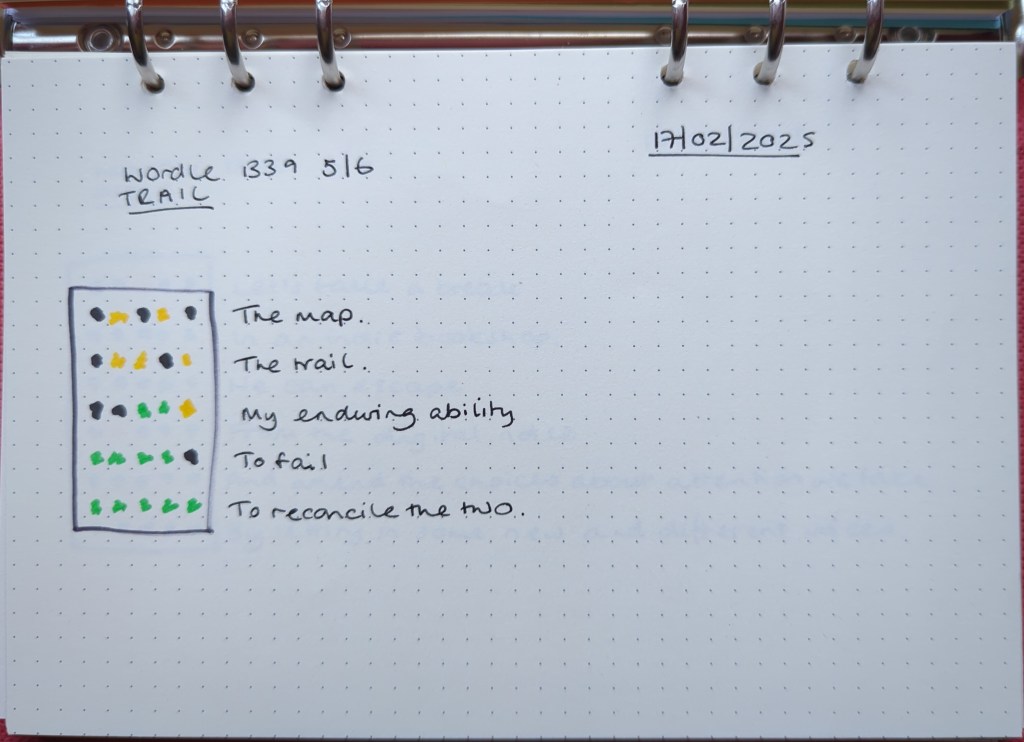 17/02/2025
Wordle 1339 5/6
TRAIL
The map.
The trail.
My enduring ability
To fail
To reconcile the two.